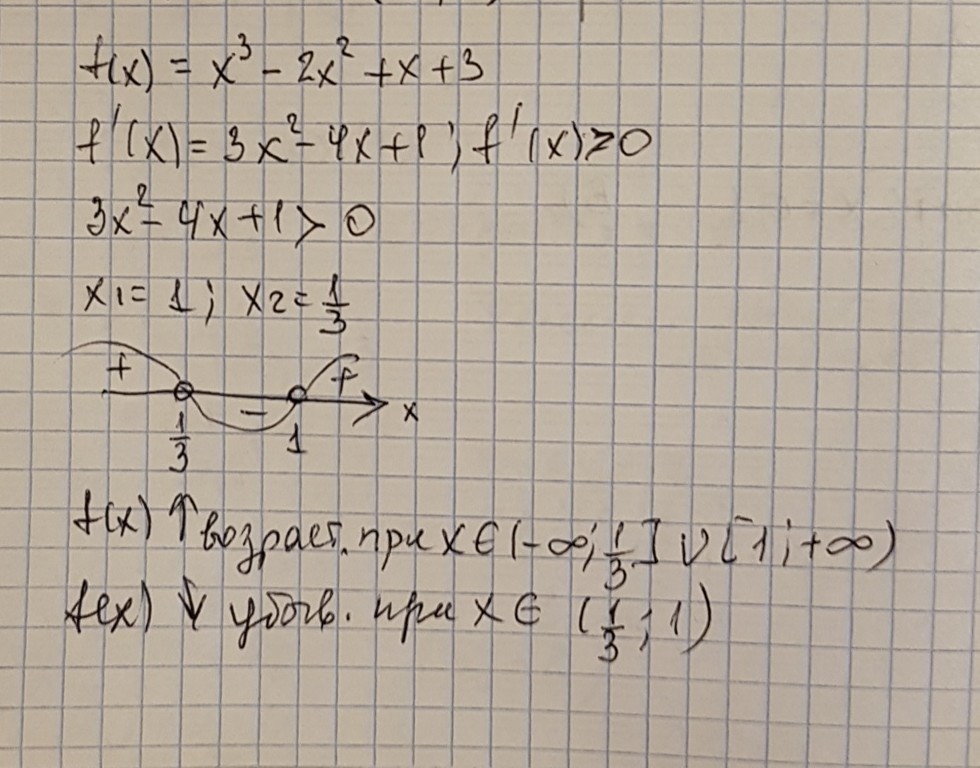 f(x) = x³ - 2x² + x + 3
f'(x) = 3x² - 4x + 1 ; f'(x) > 0
3x² - 4x + 1 > 0
x₁ = 1 ; x₂ = 1/3
+ - + x
1/3 1
f(x) ↑ возраст. при x ∈ (-∞; 1/3] ∪ [1; +∞)
f(x) ↓ убыв. при x ∈ (1/3; 1)